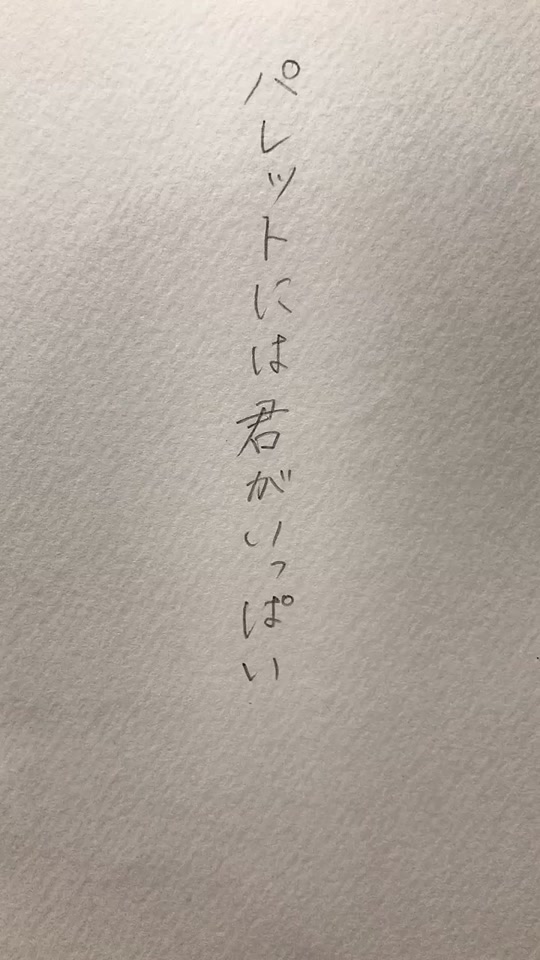 パレットには君がいっぱい